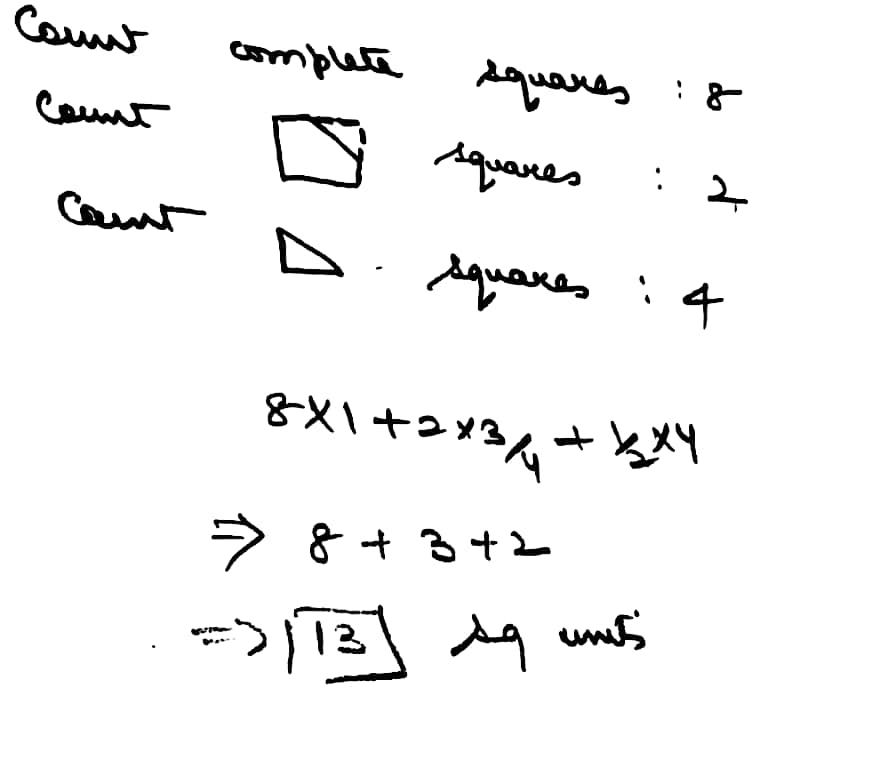 Count complete squares : 8
Count squares : 2
Count squares : 4
8 X 1 + 2 x 3/4 + 1/2 x 4
⇒ 8 + 3 + 2
⇒ 13 sq units